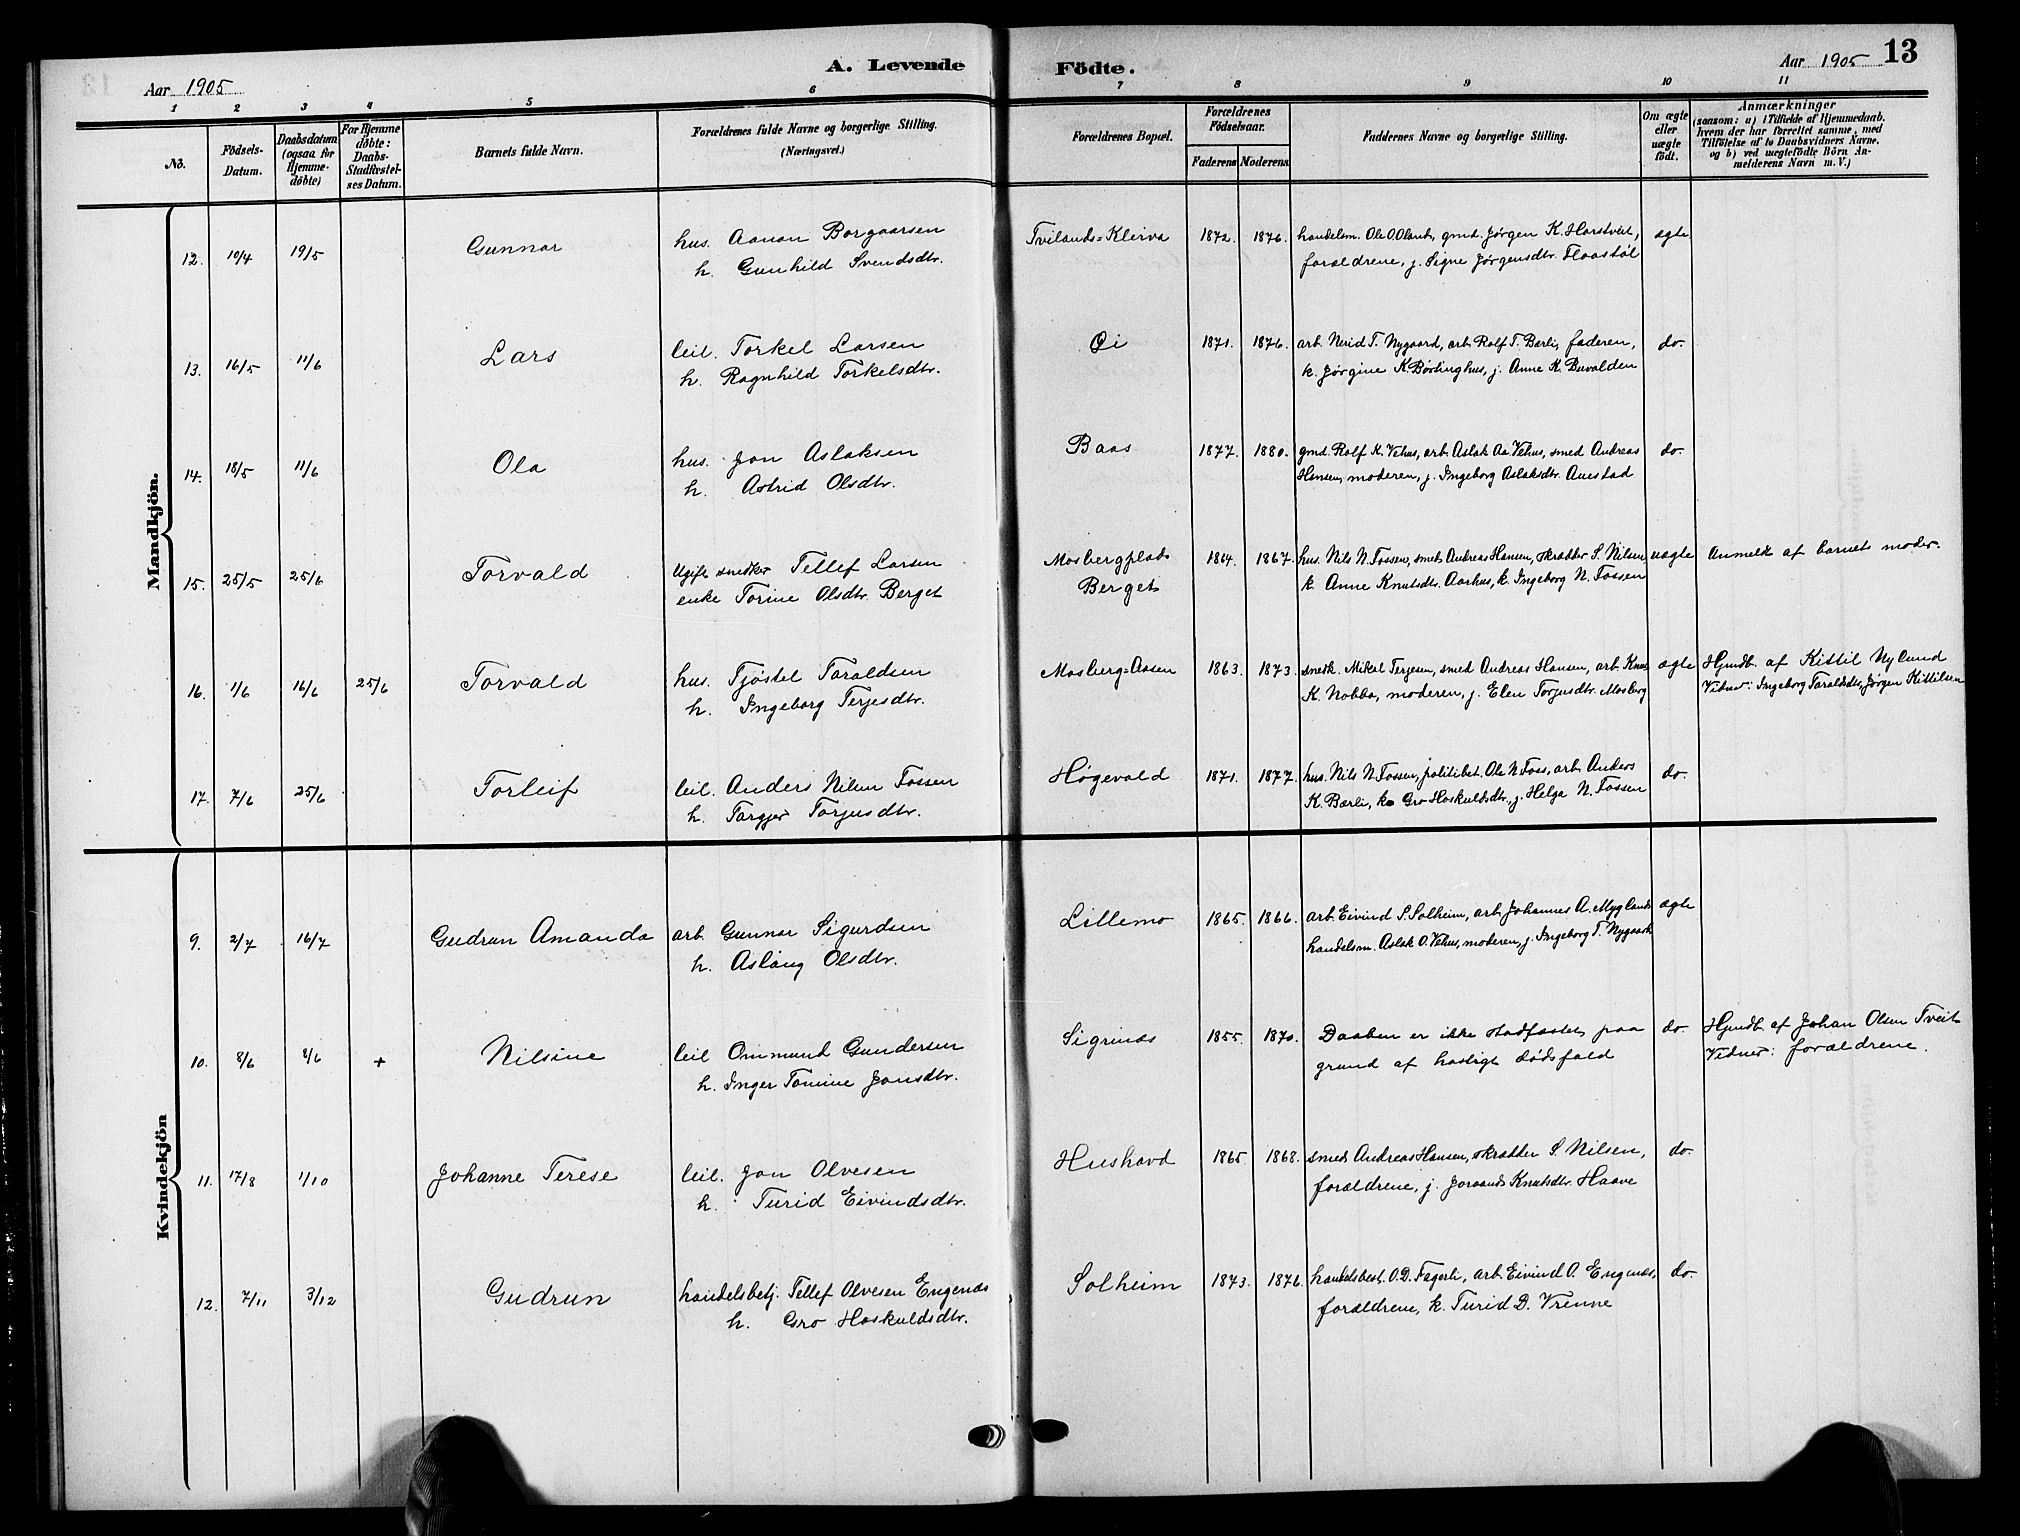 Aar 1905
A. Levende
Födte.
Aar 1905 13
1 2 3 4 5 6 7 8 9 10 11
No.
Födsels-
Datum.
Daabsdatum
(ogsaa for
Hjemme-
döbte)
For Hjemme
döbte:
Daabs-
Stadfæstel-
ses Datum.
Barnets fulde Navn.
Forældrenes fulde Navne og borgerlige Stilling.
(Næringsvei.)
Forældrenes Bopæl.
Forældrenes
Födselsaar.
Faderens Moderens
Faddernes Navne og borgerlige Stilling.
Om ægte
eller
uægte
födt.
Anmærkninger
(saasom: a) i Tilfælde af Hjemmedaab.
hvem der har forrettet samme, med
Tilföielse af to Daabsvidners Navne,
og b) ved uægtefödte Börn An-
melderens Navn m.V.)
Mandkjön.
12. 10/4 19/5 Gunnar
hus. Aanon Borgaarsen
h. Gunhild Svendsdtr.
Tvilands=Kleiva 1872. 1876.
handelsm. Ole O. Oland, gmd. Jørgen K. Harstveit,
forældrene, j. Signe Jørgensdtr. Flaastøl
ægte
13. 16/5 11/6 Lars
leil. Torkel Larsen
h. Ragnhild Torkelsdtr.
Øi 1871. 1876.
arb. Nerid T. Nygaard, arb. Rolf T. Bærli, faderen,
k. Jørgine K. Børtinghus, j. Anne K. Buvalden
do.
14. 18/5 11/6 Ola
hus. Jon Aslaksen
h. Astrid Olsdtr.
Baas 1877. 1880.
gmd. Rolf K. Vehus, arb. Aslak Aa. Vehus, smed Andreas
Hansen, moderen, j. Ingeborg Aslaksdtr. Austad
do.
15. 25/5 25/6 Torvald
Ugift snedker Tellef Larsen
enke Torine Olsdtr. Berget
Mosbergplads
Berget
1864. 1867.
hus. Nils N. Fossen, smed Andreas Hansen, skrædder S. Nilsen
k. Anne Knutsdtr. Aarhus, k. Ingeborg N. Fossen
uægte
Anmeldt af barnets moder.
16. 1/6 16/6 25/6 Torvald
hus. Tjøstel Taraldsen
h. Ingeborg Terjesdtr.
Mosberg-Aasen 1863. 1873.
snedk. Mikal Terjesen, smed Andreas Hansen, arb. Knut
K. Nobba, moderen, j. Elen Torjusdtr. Mosberg
ægte
Hjmdb. af Kittil Nylund
Vidner: Ingeborg Taraldsdtr, Jørgen Kittilsen
17. 7/6 25/6 Torleif
leil. Anders Nilsen Fossen
h. Torgjer Torjusdtr.
Høgevold 1871. 1877.
hus. Nils N. Fossen, politibet. Ole N. Foss, arb. Anders
K. Bærli, k. Gro Hoskuldsdtr., j. Helga N. Fossen
do.
Kvindekjön
9. 2/7 16/7 Gudrun Amanda
arb. Gunnar Sigurdsen
h. Aslaug Olsdtr.
Lillemo 1865. 1866.
arb. Eivind S. Solheim, arb. Johannes A. Mygland
handelsm. Aslak O. Vehus, moderen, j. Ingeborg T. Nygaard
ægte
10. 8/6 8/6 + Nilsine
leil Ommund Gundersen
h. Inger Tomine Jonsdtr.
Sigenæs 1855. 1870.
Daaben er ikke stadfæstet paa
grund af hastigt dødsfald
do.
Hjmdb. af Johan Olsen Tveit
Vidner: forældrene.
11. 17/8 1/10 Johanne Terese
leil. Jon Olvesen
h. Turid Eivindsdtr.
Hushovd 1865. 1868.
smed Andreas Hansen, skrædder S. Nilsen,
forældrene, j. Joraand Knutsdtr. Haave
do.
12. 7/11 3/12 Gudrun
handelsbetj. Tellef Olvesen Engenæs
h. Gro Hoskuldsdtr.
Solheim 1873. 1876.
handelsbest. O. D. Fagerli, arb. Eivind O. Engenæs,
forældrene, k. Turid D. Vrenne
do.